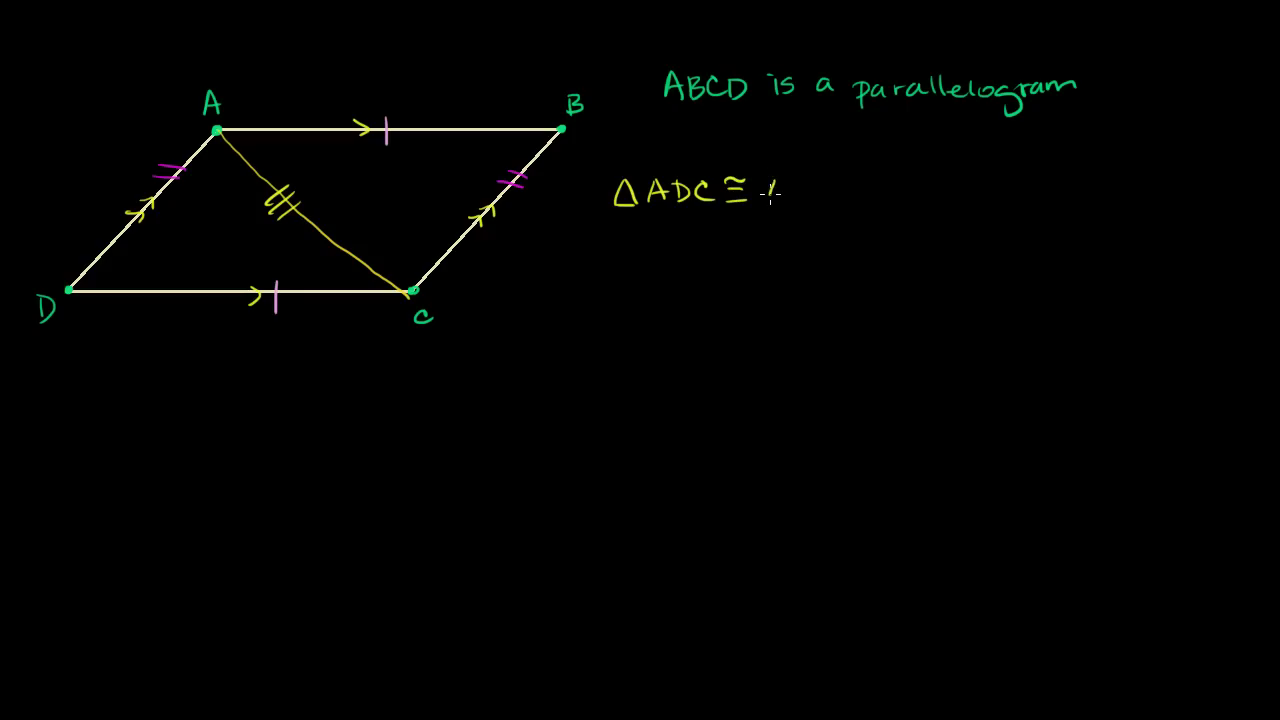 A
B
ABCD is a parallelogram
△ADC ≅
D
C